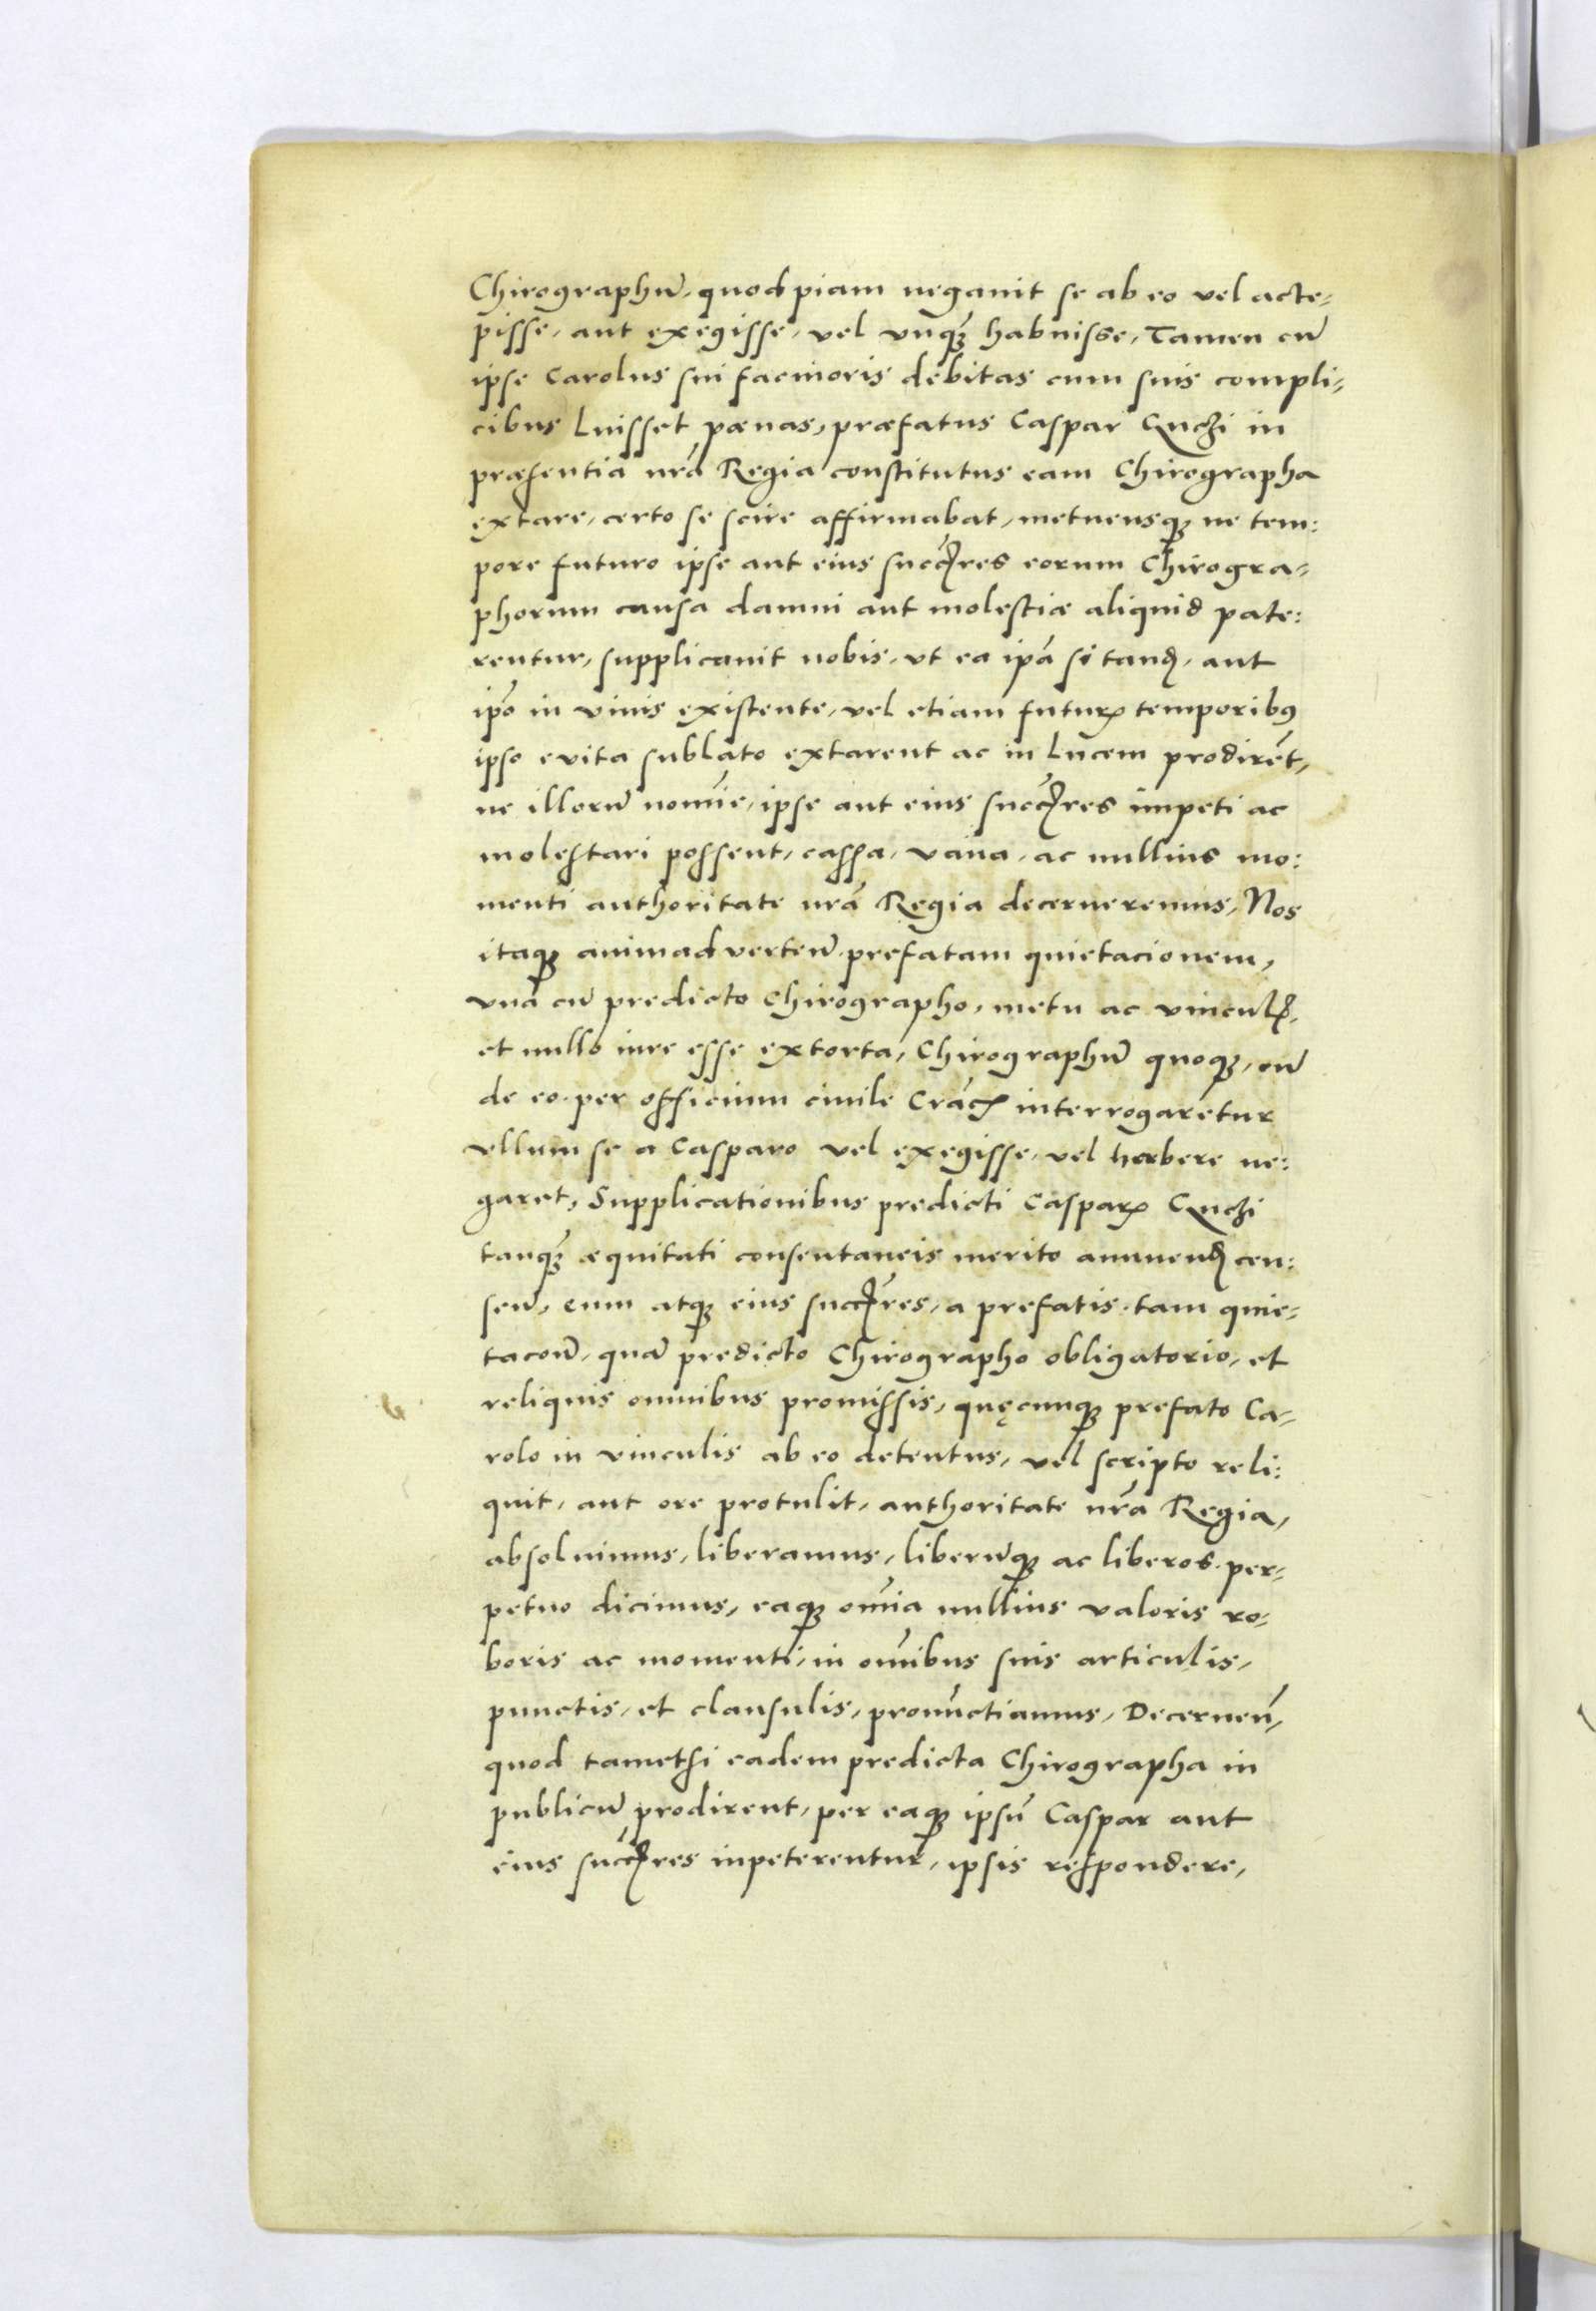 Chirographũ, quodpiam negauit se ab eo vel acce-
pisse, aut exegisse, vel vnqꝫ habuisse, Tamen cũ
ipse Carolus sui facinoris debitas cum suis compli-
cibus luisset pœnas, præfatus Caspar Guczi in
præsentia nr̃a Regia constitutus eam Chirographa
extare, certo se scire affirmabat, metuensqꝫ ne tem:
pore futuro ipse aut eius succ̃res eorum Chirogra-
phorum causa damni aut molestiæ aliquid pate:
rentur, supplicauit nobis, vt ea ip̃a si tandꝫ, aut
ip̃o in viuis existente, vel etiam futurꝭ temporibꝰ
ipso e vita sublato extarent ac in lucem prodirẽt,
ne illorũ nomĩe, ipse aut eius succ̃res impeti ac
molestari possent, cassa, vana, ac nullius mo:
menti authoritate nr̃a Regia decerneremus, Nos
itaqꝫ animadverteñ prefatam quietacionem,
vna cũ predicto Chirographo, metu ac vinculꝭ,
et nullo iure esse extorta, Chirographũ quoqꝫ, cũ
de eo per officium ciuile Crac̃ interrogaretur
vllum se a Casparo vel exegisse, vel habere ne:
garet, Supplicationibus predicti Casparꝭ Guczi
tanqꝫ æquitati consentaneis merito annuendꝫ cen:
señ, eum atqꝫ eius succ̃res, a prefatis tam quie-
tacoñe, quã predicto Chirographo obligatorio, et
reliquis omnibus promissis, quęcunqꝫ prefato Ca-
rolo in vinculis ab eo detentus, vel scripto reli:
quit, aut ore protulit, authoritate nr̃a Regia,
absoluimus, liberamus, liberũqꝫ ac liberos per-
petuo dicimus, eaqꝫ om̃ia nullius valoris ro-
boris ac momenti, in om̃ibus suis articulis,
punctis, et clausulis, pronũctiamus, Decerneñ,
quod tametsi eadem predicta Chirographa in
publicũ prodirent, per eaqꝫ ipsũ Caspar aut
eius succ̃res inpeterentur, ipsis respondere,